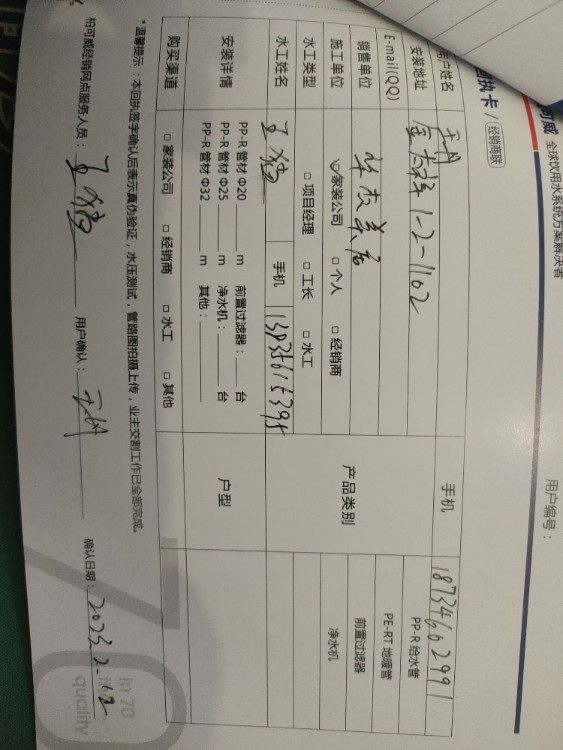 可威 全球饮用水系统方案解决者
回执卡 / 经销商联
用户编号：
用户姓名 手机 18734602991
安装地址 1-2-1102 PP-R 给水管
E-mail(QQ) PE-RT 地暖管
销售单位 产品类别 前置过滤器
施工单位 家装公司 □ 个人 □ 经销商 净水机
水工类型 □ 项目经理 □ 工长 □ 水工
水工姓名 手机
安装详情 PP-R 管材 Φ20 ____ m 前置过滤器：____ 台 户型
PP-R 管材 Φ25 ____ m 净水机：____ 台
PP-R 管材 Φ32 ____ m 其他：____
购买渠道 □ 家装公司 □ 经销商 □ 水工 □ 其他
*温馨提示：本回执签字确认后表示真伪验证，水压测试，管路图拍摄上传，业主交割工作已全部完成。
柏可威经销网点服务人员： 用户确认： 确认日期：2023.2.12
In 70
quality